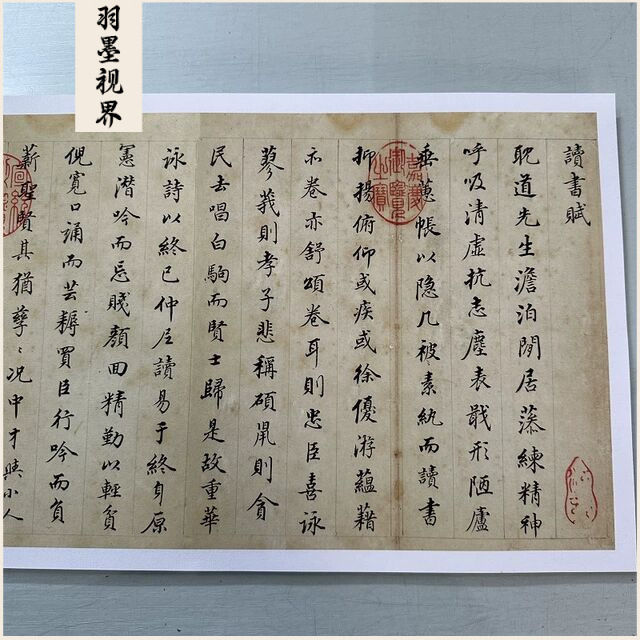 羽墨视界
讀書賦
耽道先生澹泊閒居藻練精神
呼吸清虛抗志塵表戢形陋廬
垂蕙帳以隐几被素紈而讀書
抑揚俯仰或疾或徐優游蘊藉
亦卷亦舒頌卷耳則忠臣喜詠
蓼莪則孝子悲稱碩鼠則貪
民去唱白駒而賢士歸是故重華
詠詩以終已仲尼讀易于終身原
憲潜吟而忘賤顏回精勤以輕貧
倪寬口誦而芸耨買臣行吟而負
薪聖賢其猶孳〻况中才與小人
嘉慶御覽之寶